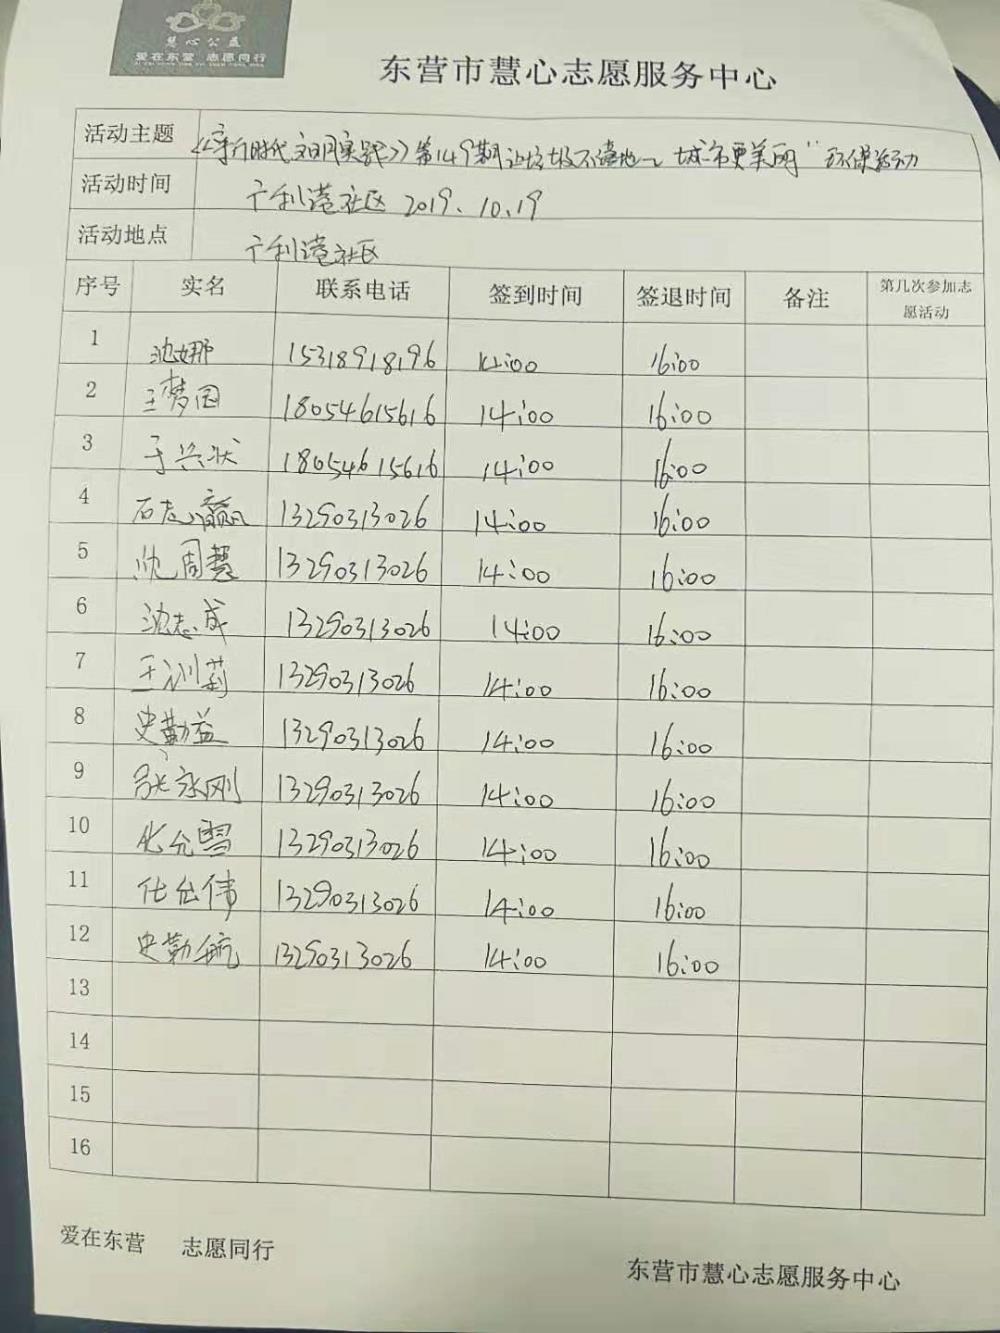 慧心公益
爱在东营 志愿同行
东营市慧心志愿服务中心
活动主题 《新时代文明实践》第149期让垃圾不落地 城市更美丽"环保活动
活动时间 广利港社区 2019.10.19
活动地点 广利港社区
序号 实名 联系电话 签到时间 签退时间 备注 第几次参加志愿活动
1 沈娜 15318918196 14:00 16:00
2 王梦园 18054615616 14:00 16:00
3 于兴状 18054615616 14:00 16:00
4 石志赢 13290313026 14:00 16:00
5 沈周慧 13290313026 14:00 16:00
6 沈志成 13290313026 14:00 16:00
7 王训莉 13290313026 14:00 16:00
8 史勤益 13290313026 14:00 16:00
9 张永刚 13290313026 14:00 16:00
10 化允雪 13290313026 14:00 16:00
11 仕台伟 13290313026 14:00 16:00
12 史勤航 13290313026 14:00 16:00
13
14
15
16
爱在东营 志愿同行
东营市慧心志愿服务中心